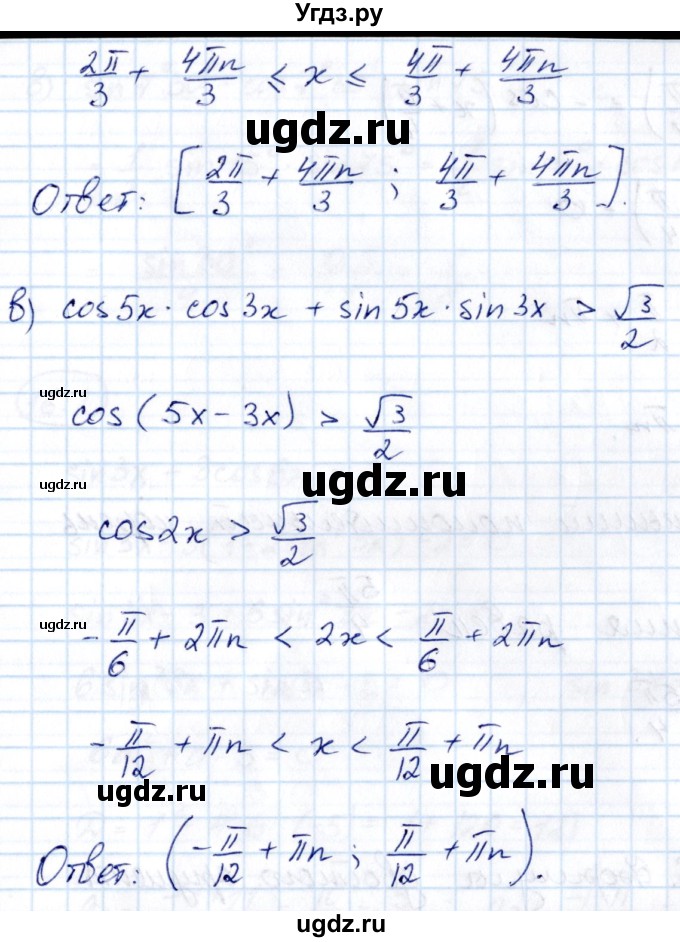 Угдз.ру
2π/3 + 4πn/3 ≤ x ≤ 4π/3 + 4πn/3
ugdz.ru
Ответ: [2π/3 + 4πn/3 ; 4π/3 + 4πn/3].
в) cos5x · cos3x + sin5x · sin3x > √3/2
ugdz.ru
cos(5x - 3x) > √3/2
ugdz.ru
ugdz.ru
cos2x > √3/2
ugdz.ru
-π/6 + 2πn < 2x < π/6 + 2πn
-π/12 + πn < x < π/12 + πn
ugdz.ru
ugdz.ru
Ответ: (-π/12 + πn ; π/12 + πn).
ugdz.ru